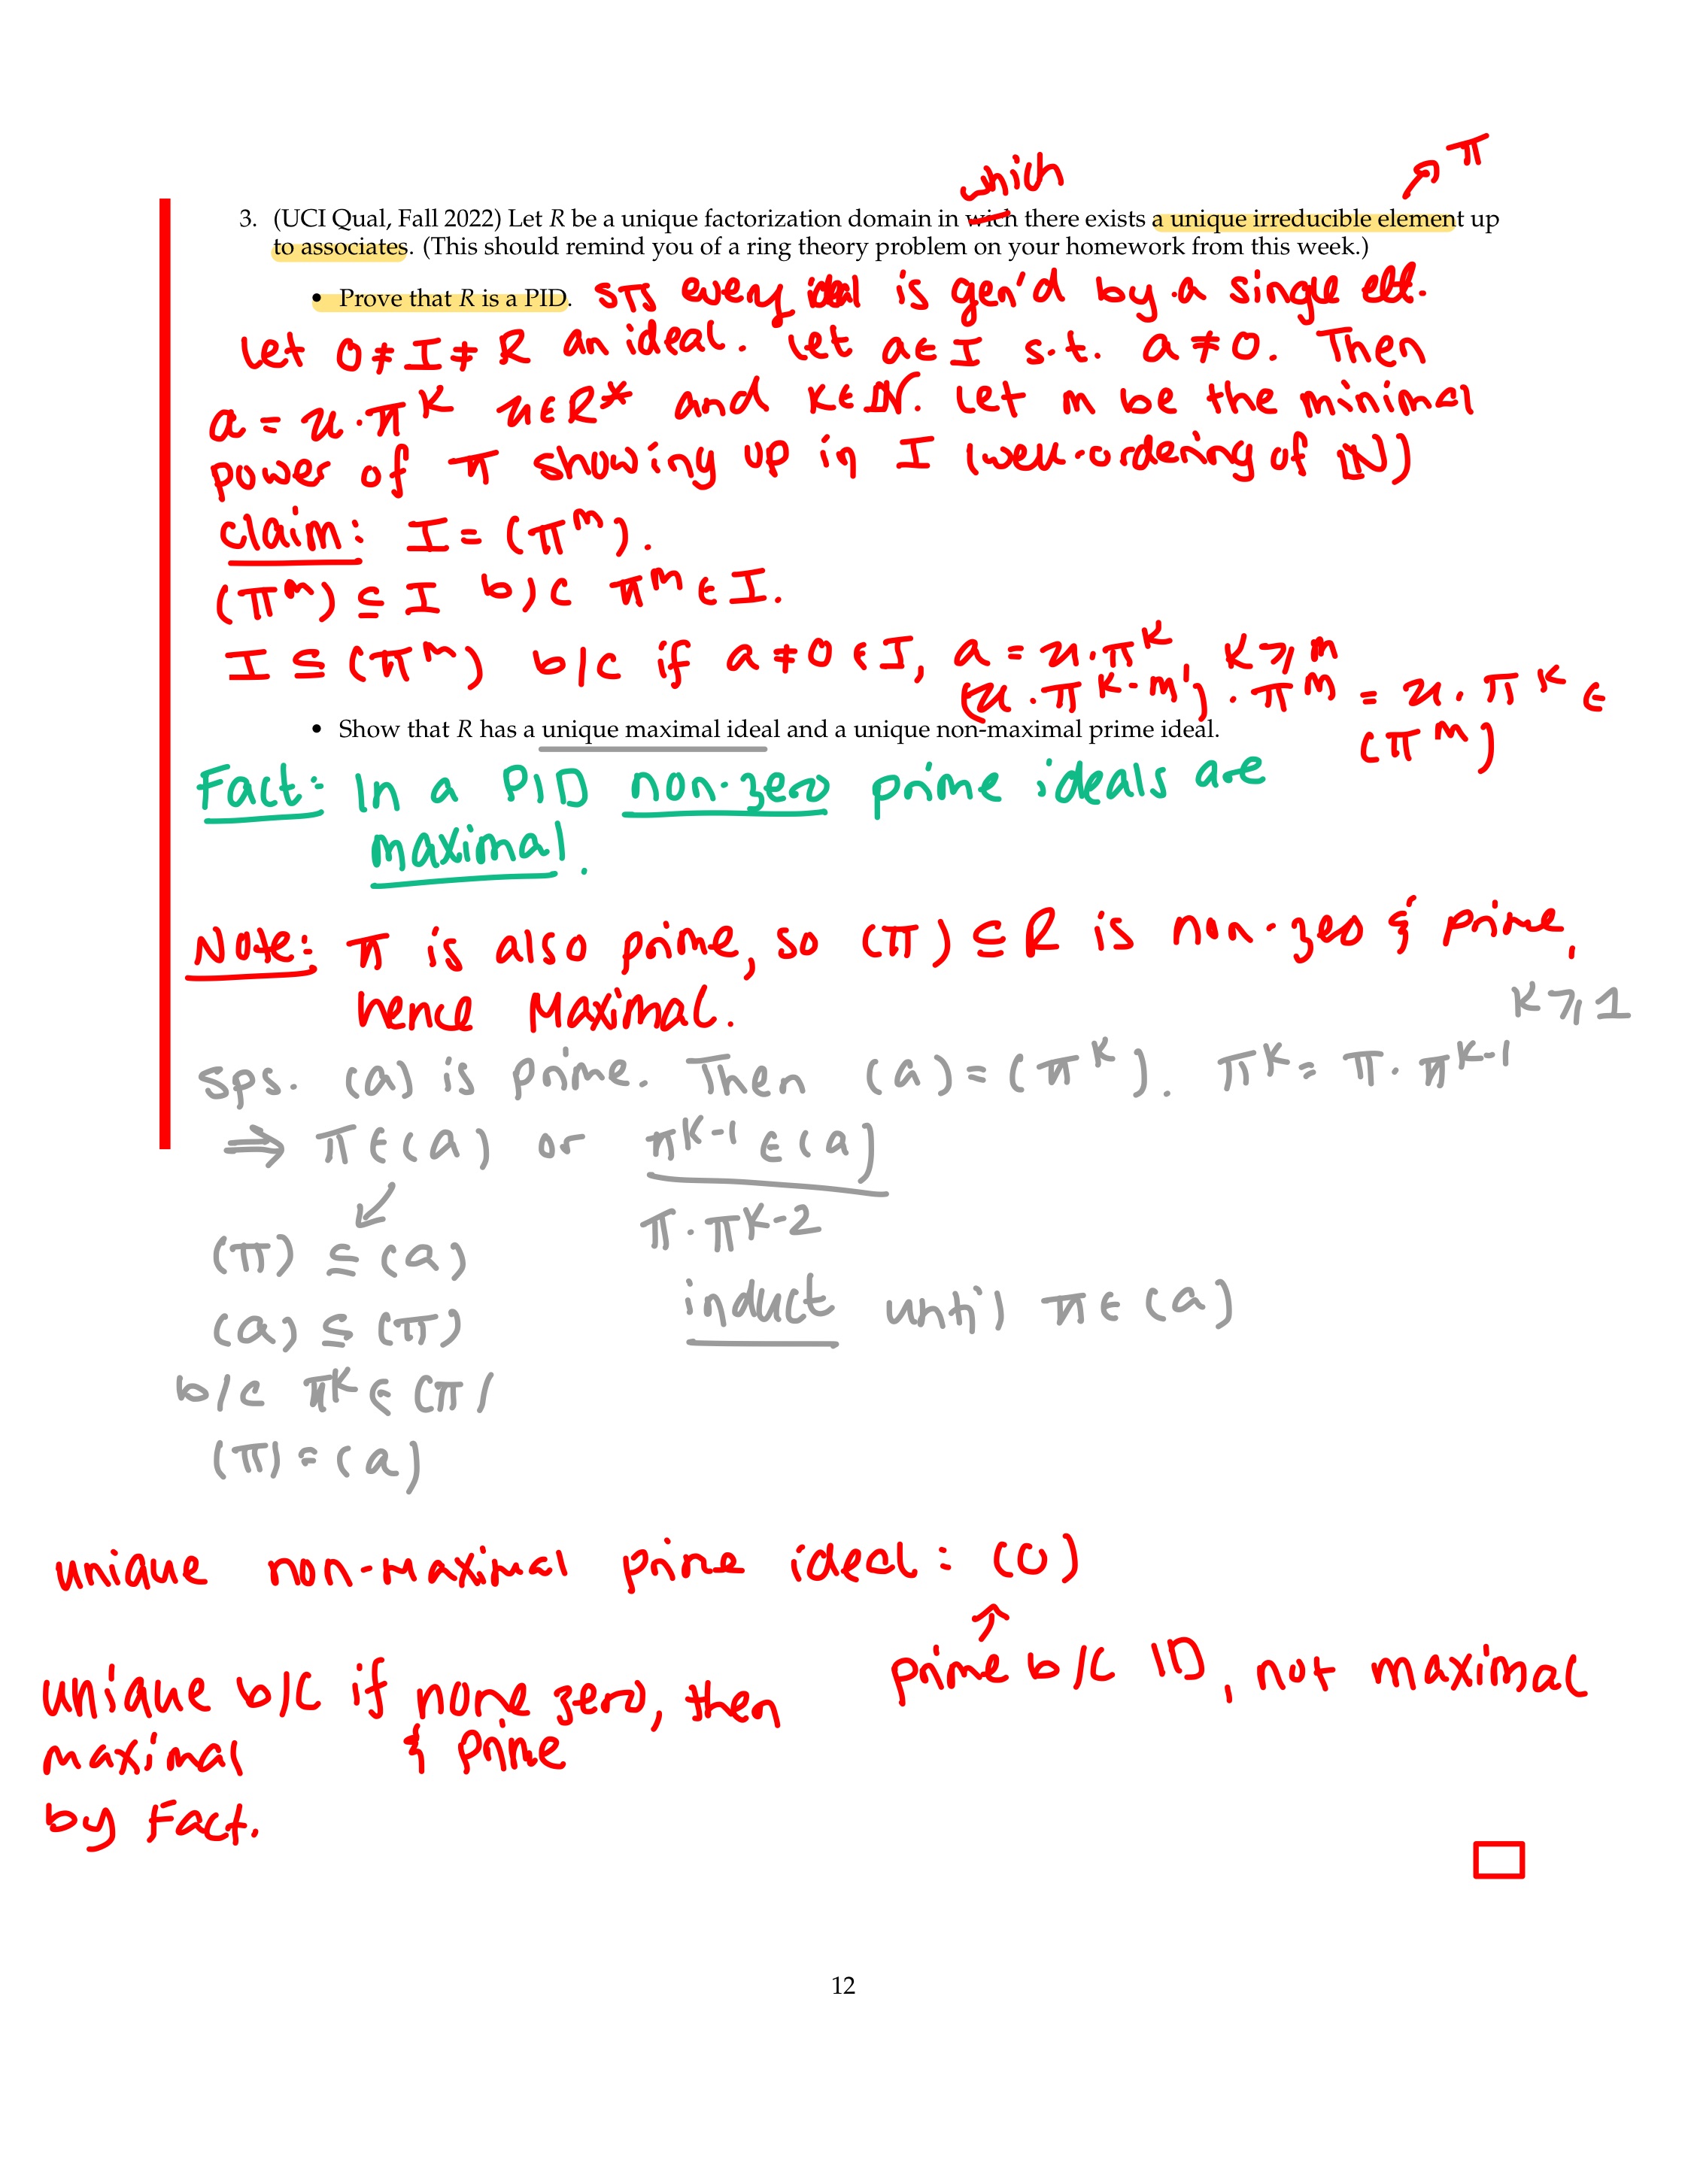 which
π
3. (UCI Qual, Fall 2022) Let R be a unique factorization domain in wich there exists a unique irreducible element up
to associates. (This should remind you of a ring theory problem on your homework from this week.)
• Prove that R is a PID. STS every ideal is gen'd by a single elt.
Let 0 ≠ I ≠ R an ideal. Let a ∈ I s.t. a ≠ 0. Then
a = u · π^k u ∈ R* and k ∈ ℕ. Let m be the minimal
power of π showing up in I (well-ordering of ℕ)
Claim: I = (π^m).
(π^m) ⊆ I b/c π^m ∈ I.
I ⊆ (π^m) b/c if a ≠ 0 ∈ I, a = u · π^k, k ≥ m
(u · π^{k-m}) · π^m = u · π^k ∈
(π^m)
• Show that R has a unique maximal ideal and a unique non-maximal prime ideal.
Fact: In a PID non-zero prime ideals are
maximal.
Note: π is also prime, so (π) ⊆ R is non-zero & prime,
hence Maximal.
k ≥ 1
Sps. (a) is prime. Then (a) = (π^k). π^k = π · π^{k-1}
⇒ π ∈ (a) or π^{k-1} ∈ (a)
↙
π · π^{k-2}
(π) ⊆ (a)
induct until π ∈ (a)
(a) ⊆ (π)
b/c π^k ∈ (π)
(π) = (a)
unique non-maximal prime ideal: (0)
↑
prime b/c ID, not maximal
unique b/c if none zero, then
maximal & prime
by Fact.
□
12